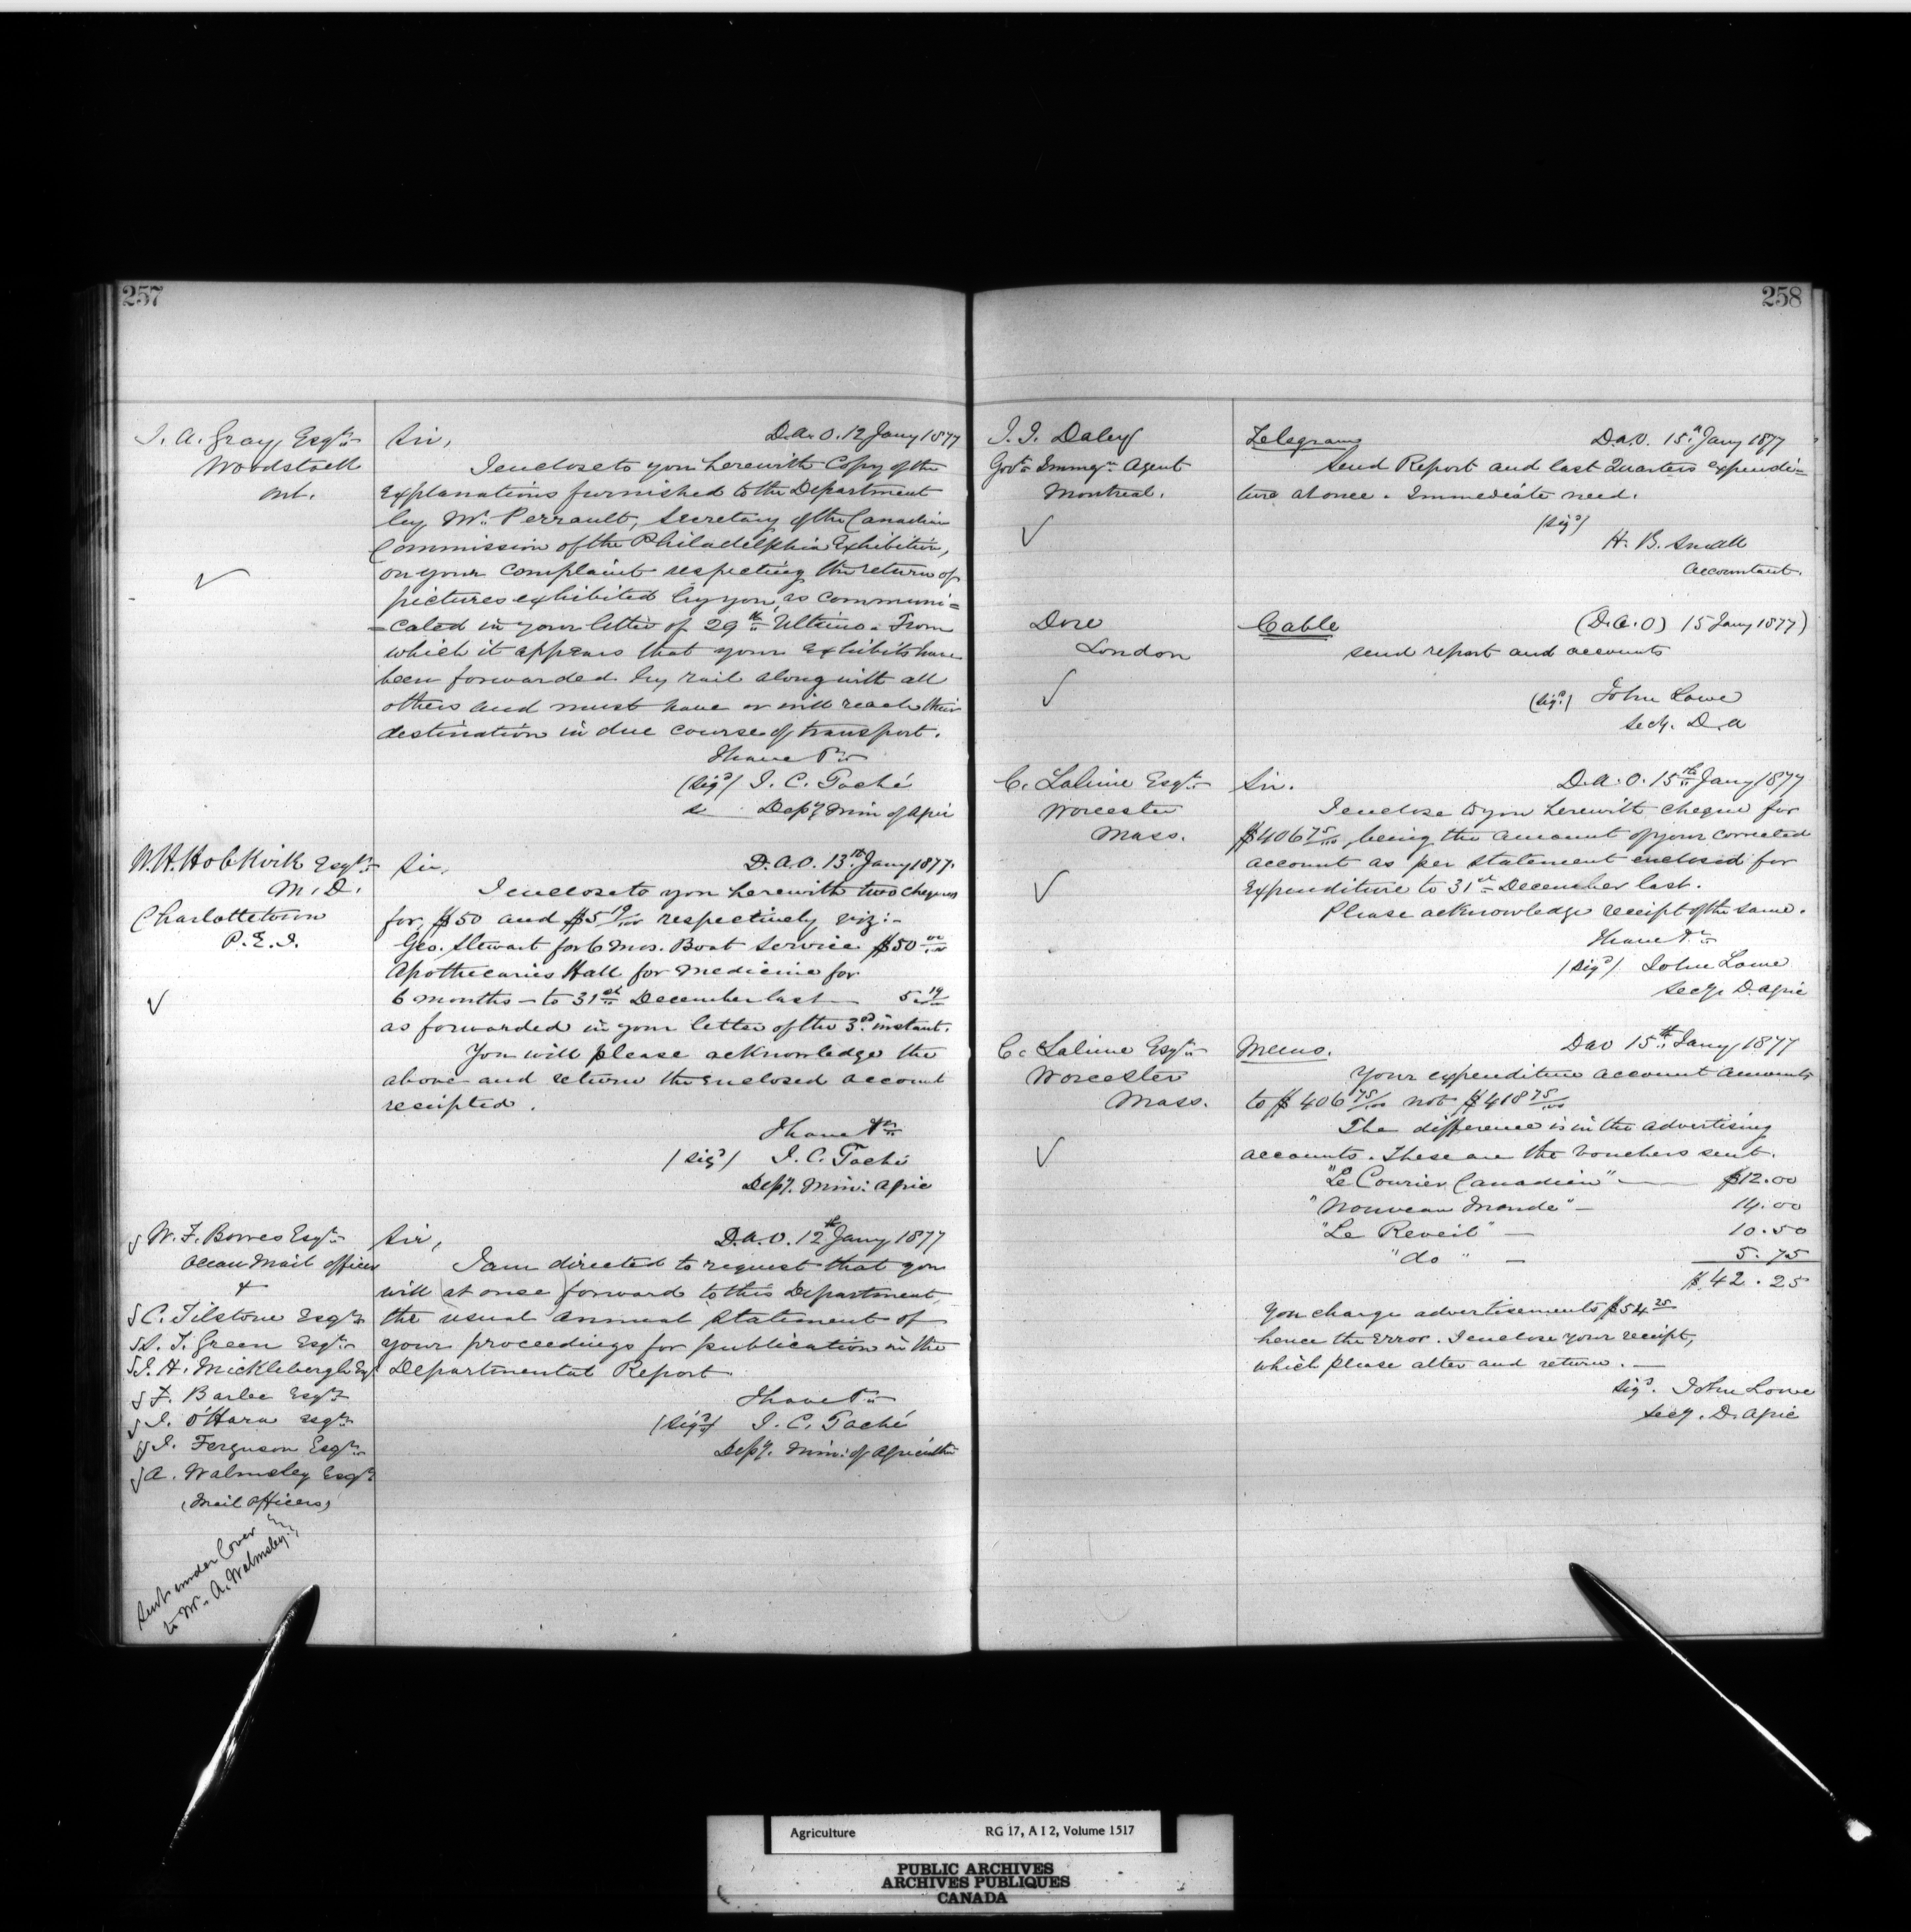 257
J. A. Gray, Esqre
Woodstock
Ont.
Sir, D. A. O. 12 Jany 1877
I enclose to you herewith Copy of the
explanations furnished to the Department
by Mr. Perrault, Secretary of the Canadian
Commission of the Philadelphia Exhibition,
on your complaint respecting the return of
pictures exhibited by you, as communi=
=cated in your letter of 29th Ultimo. From
which it appears that your exhibits have
been forwarded by rail along with all
others and must have or will reach their
destination in due course of transport.
I have &c
(sigd) J. C. Taché
Depy Min of Agric
W. H. Hobkirk Esqre
M. D.
Charlottetown
P. E. I.
Sir, D. A. O. 13th Jany 1877.
I enclose to you herewith two cheques
for $50 and $5 19/100 respectively viz:-
Geo. Stewart for 6 mos. Boat Service $50 00/100
Apothecaries Hall for Medicine for
6 months - to 31st December last - 5 19/100
as forwarded in your letter of the 3rd instant.
You will please acknowledge the
above and return the enclosed account
receipted.
I have &c
(sigd) J. C. Taché
Depy. Min: Agric
W. F. Bowes Esqre
Ocean Mail officer
&
C. Tilstone Esqre
S. T. Green Esqre
J. H. Micklebergh Esqr
F. Barlee Esqre
J. O'Hara Esqre
J. Ferguson Esqre
A. Walmsley Esqre
(Mail Officers)
Sent under Cover
to Mr. A. Walmsley.
Sir, D. A. O. 12th Jany 1877
I am directed to request that you
will (at once) forward to this Department,
the usual annual statement of
your proceedings for publication in the
Departmental Report
I have &c
(sigd) J. C. Taché
Depy. Min: of Agriculture
258
J. J. Daley
Govt Immgn Agent
Montreal.
Telegram D. A. O. 15th Jany 1877
Send Report and last Quarters expendi=
ture at once. Immediate need.
(sigd)
H. B. Small
Accountant.
Dore
London
Cable (D. A. O) 15 Jany 1877)
send report and accounts
(sigd) John Lowe
Secy. D. A
C. Lalime Esqre
Worcester
Mass.
Sir. D. A. O. 15th Jany 1877
I enclose to you herewith cheque for
$406 75/100, being the amount of your corrected
account as per statement enclosed for
Expenditure to 31st December last.
Please acknowledge receipt of the same.
I have &c
(sigd) John Lowe
Secy D. Agric
C. Lalime Esqr
Worcester
Mass.
Memo. DAO 15th Jany 1877
Your expenditure account amounts
to $406 75/100 not $418 75/100
The difference is in the advertising
accounts. These are the vouchers sent.
"Le Courier Canadien" — $12.00
"Nouveau Monde" — 14.00
"Le Reveil" — 10.50
"do" — 5.75
$42.25
You charge advertisements $54 25
hence the Error. I enclose your receipt,
which please alter and return. —
Sigd. John Lowe
Secy. D. Agric
Agriculture RG 17, A I 2, Volume 1517
PUBLIC ARCHIVES
ARCHIVES PUBLIQUES
CANADA